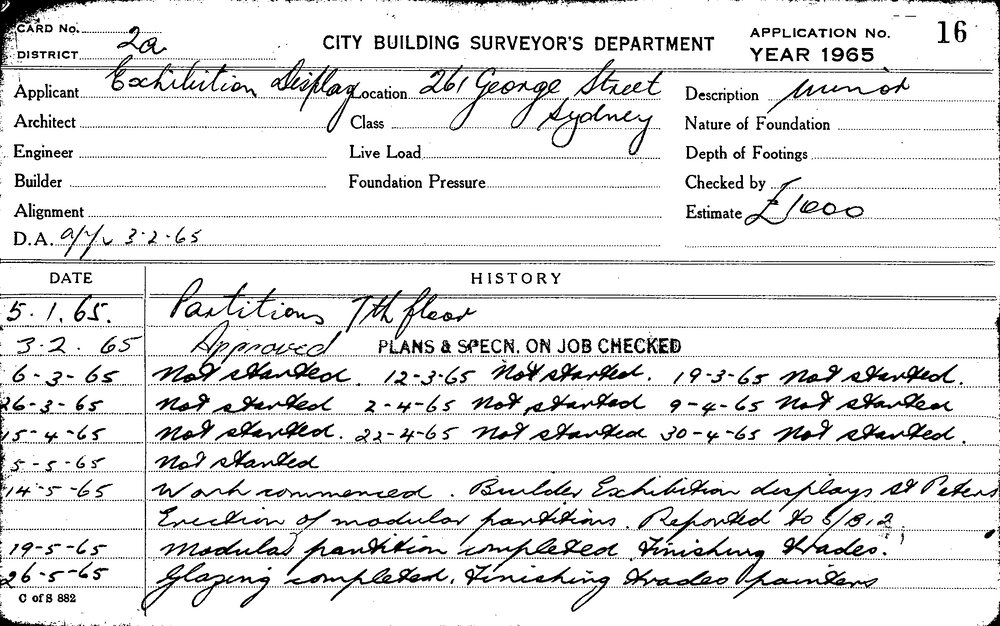 CARD No. 2a CITY BUILDING SURVEYOR'S DEPARTMENT APPLICATION No. 16
DISTRICT YEAR 1965
Applicant Exhibition Display Location 261 George Street Description Minor
Architect Class Sydney Nature of Foundation
Engineer Live Load Depth of Footings
Builder Foundation Pressure Checked by
Alignment Estimate £1000
D.A. 3-2-65
DATE HISTORY
5.1.65. Partitions 7th floor
3-2.65 Approved PLANS & SPECN. ON JOB CHECKED
6-3-65 Not started. 12-3-65 Not started. 19-3-65 Not started.
26-3-65 Not started 2-4-65 Not started 9-4-65 Not started
15-4-65 Not started. 22-4-65 Not started 30-4-65 Not started.
5-5-65 Not started
14-5-65 Work commenced. Builder Exhibition displays St Peters
Erection of modular partitions. Reported to
19-5-65 Modular partition completed Finishing trades.
26-5-65 Glazing completed. Finishing trades painters
C of S 882